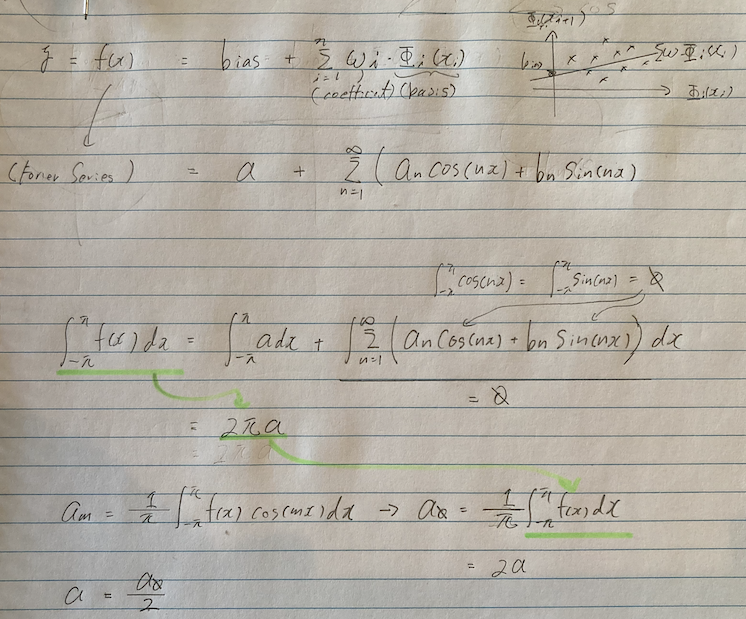 Φᵢ(xᵢ₊₁)
ŷ = f(x) = bias + Σᵢ₌₁ⁿ ωᵢ · Φᵢ(xᵢ)
(coefficient) (basis)
bias
Σω · Φᵢ(xᵢ)
Φᵢ(xᵢ)
(Forier Series) = a + Σₙ₌₁^∞ (aₙ cos(nx) + bₙ sin(nx)
∫₋π^π cos(nx) = ∫₋π^π sin(nx) = 0
∫₋π^π f(x) dx = ∫₋π^π a dx + ∫ Σₙ₌₁^∞ (aₙ cos(nx) + bₙ sin(nx)) dx
= 0
= 2πa
aₘ = 1/π ∫₋π^π f(x) cos(mx) dx → a₀ = 1/π ∫₋π^π f(x) dx
= 2a
a = a₀/2